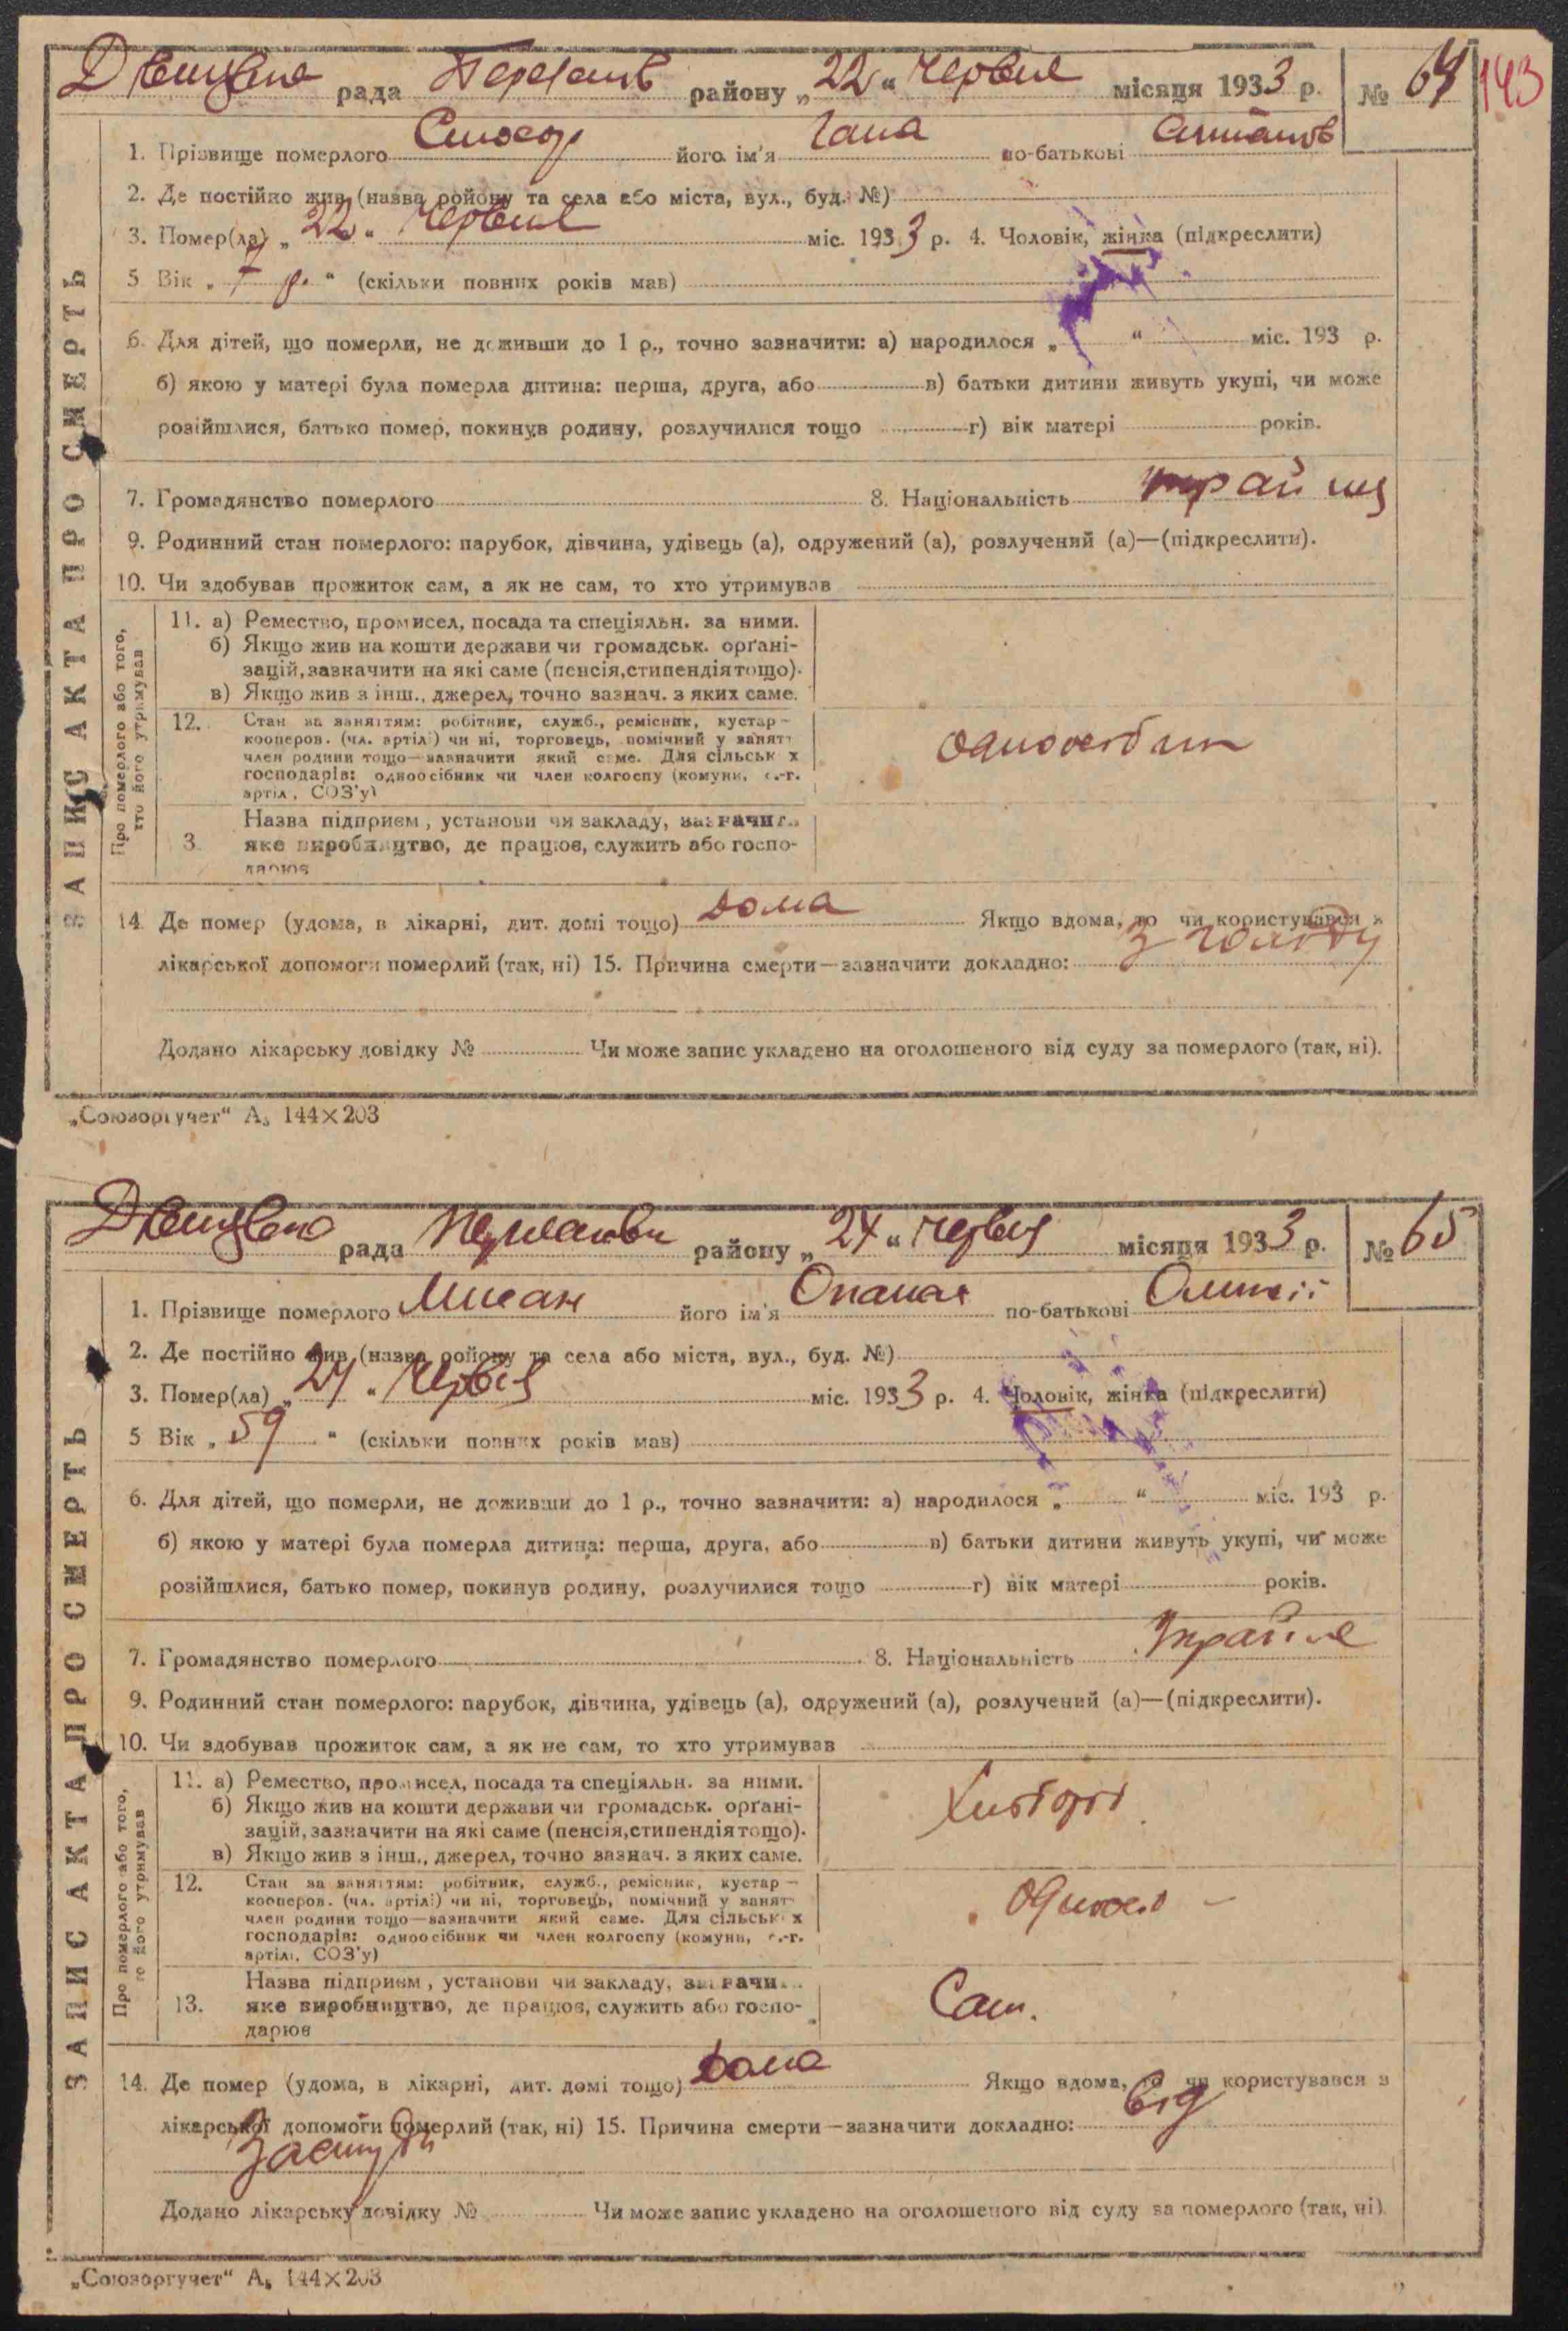 рада району „ 22 “ червня місяця 1933 р. № 64 143
1. Прізвище померлого його ім'я Гана по-батькові
2. Де постійно жив (назва ройону та села або міста, вул., буд. №)
3. Помер(ла) „ 22 “ червня міс. 1933 р. 4. Чоловік, жінка (підкреслити)
5 Вік „ 7 р. “ (скільки повних років мав)
6. Для дітей, що померли, не доживши до 1 р., точно зазначити: а) народилося „ “ міс. 193 р.
б) якою у матері була померла дитина: перша, друга, або в) батьки дитини живуть укупі, чи може
розійшлися, батько помер, покинув родину, розлучилися тощо г) вік матері років.
7. Громадянство померлого 8. Національність
9. Родинний стан померлого: парубок, дівчина, удівець (а), одружений (а), розлучений (а)—(підкреслити).
10. Чи здобував прожиток сам, а як не сам, то хто утримував
ЗАПИС АКТА ПРО СМЕРТЬ
Про померлого або того,
хто його утримував
11. а) Ремество, промисел, посада та спеціяльн. за ними.
б) Якщо жив на кошти держави чи громадськ. орґані-
зацій, зазначити на які саме (пенсія, стипендія тощо).
в) Якщо жив з інш., джерел, точно зазнач. з яких саме.
12. Стан за заняттям: робітник, служб., ремісник, кустар –
кооперов. (чл. артілі) чи ні, торговець, помічний у занят
член родини тощо—зазначити який саме. Для сільськ х
господарів: одноосібник чи член колгоспу (комуни, с.-г.
артіл, СОЗ'у)
одноосібник
Назва підприєм, установи чи закладу, зазначит
3. яке виробництво, де працює, служить або госпо-
дарює
14 Де помер (удома, в лікарні, дит. домі тощо) дома Якщо вдома, то чи користувався з
лікарської допомоги померлий (так, ні) 15. Причина смерти—зазначити докладно: З голоду
Додано лікарську довідку № Чи може запис укладено на оголошеного від суду за померлого (так, ні).
„Союзоргучет“ А₅ 144×203
рада району „ 24 “ червня місяця 1933 р. № 65
1. Прізвище померлого його ім'я Опанас по-батькові
2. Де постійно жив (назва ройону та села або міста, вул., буд. №)
3. Помер(ла) „ 24 “ червня міс. 1933 р. 4. Чоловік, жінка (підкреслити)
5 Вік „ 59 “ (скільки повних років мав)
6. Для дітей, що померли, не доживши до 1 р., точно зазначити: а) народилося „ “ міс. 193 р.
б) якою у матері була померла дитина: перша, друга, або в) батьки дитини живуть укупі, чи може
розійшлися, батько помер, покинув родину, розлучилися тощо г) вік матері років.
7. Громадянство померлого 8. Національність
9. Родинний стан померлого: парубок, дівчина, удівець (а), одружений (а), розлучений (а)—(підкреслити).
10. Чи здобував прожиток сам, а як не сам, то хто утримував
ЗАПИС АКТА ПРО СМЕРТЬ
Про померлого або того,
то його утримував
11. а) Ремество, промисел, посада та спеціяльн. за ними.
б) Якщо жив на кошти держави чи громадськ. орґані-
зацій, зазначити на які саме (пенсія, стипендія тощо).
в) Якщо жив з інш., джерел, точно зазнач. з яких саме.
12. Стан за заняттям: робітник, служб., ремісник, кустар –
кооперов. (чл. артілі) чи ні, торговець, помічний у занят
член родини тощо—зазначити який саме. Для сільськ х
господарів: одноосібник чи член колгоспу (комуни, с.-г.
артілі, СОЗ'у)
Назва підприєм, установи чи закладу, зазначи
13. яке виробництво, де працює, служить або госпо-
дарює
Сам.
14. Де помер (удома, в лікарні, дит. домі тощо) дома Якщо вдома, то чи користувався з
лікарської допомоги померлий (так, ні) 15. Причина смерти—зазначити докладно: Від
Застуди
Додано лікарську довідку № Чи може запис укладено на оголошеного від суду за померлого (так, ні)
„Союзоргучет“ А₅ 144×203